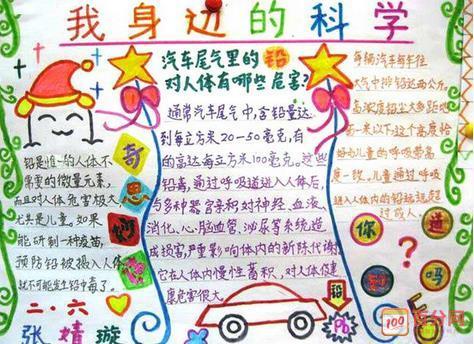 我身边的科学
汽车尾气里的铅
对人体有哪些危害?
铅是唯一的人体不
需要的微量元素,
而且对人体危害极大
尤其是儿童。如果
能研制一种疫苗,
预防铅被摄入人体
就不可能发生铅中毒了。
奇
思
妙
想
二·六
张婧璇
通常汽车尾气中,含铅量达
到每立方米20—50毫克,有
的高达每立方米100毫克。这些
铅高,通过呼吸道进入人体后,
与多种器官亲和对神经、血液、
消化、心、脑血管、泌尿等系统造
成损害,严重影响体内的新陈代谢,
它在人体内慢性蓄积,对人体健
康危害很大。
铅
Pb
每辆汽车每年往
大气中排铅达两公斤。
高浓度铅尘大多距地
一米以下,这个高度恰
好与儿童的呼吸带高
度一致,儿童通过呼吸
进入人体内的铅远远超
过成人。
你
知
道
吗
?
100
百分网